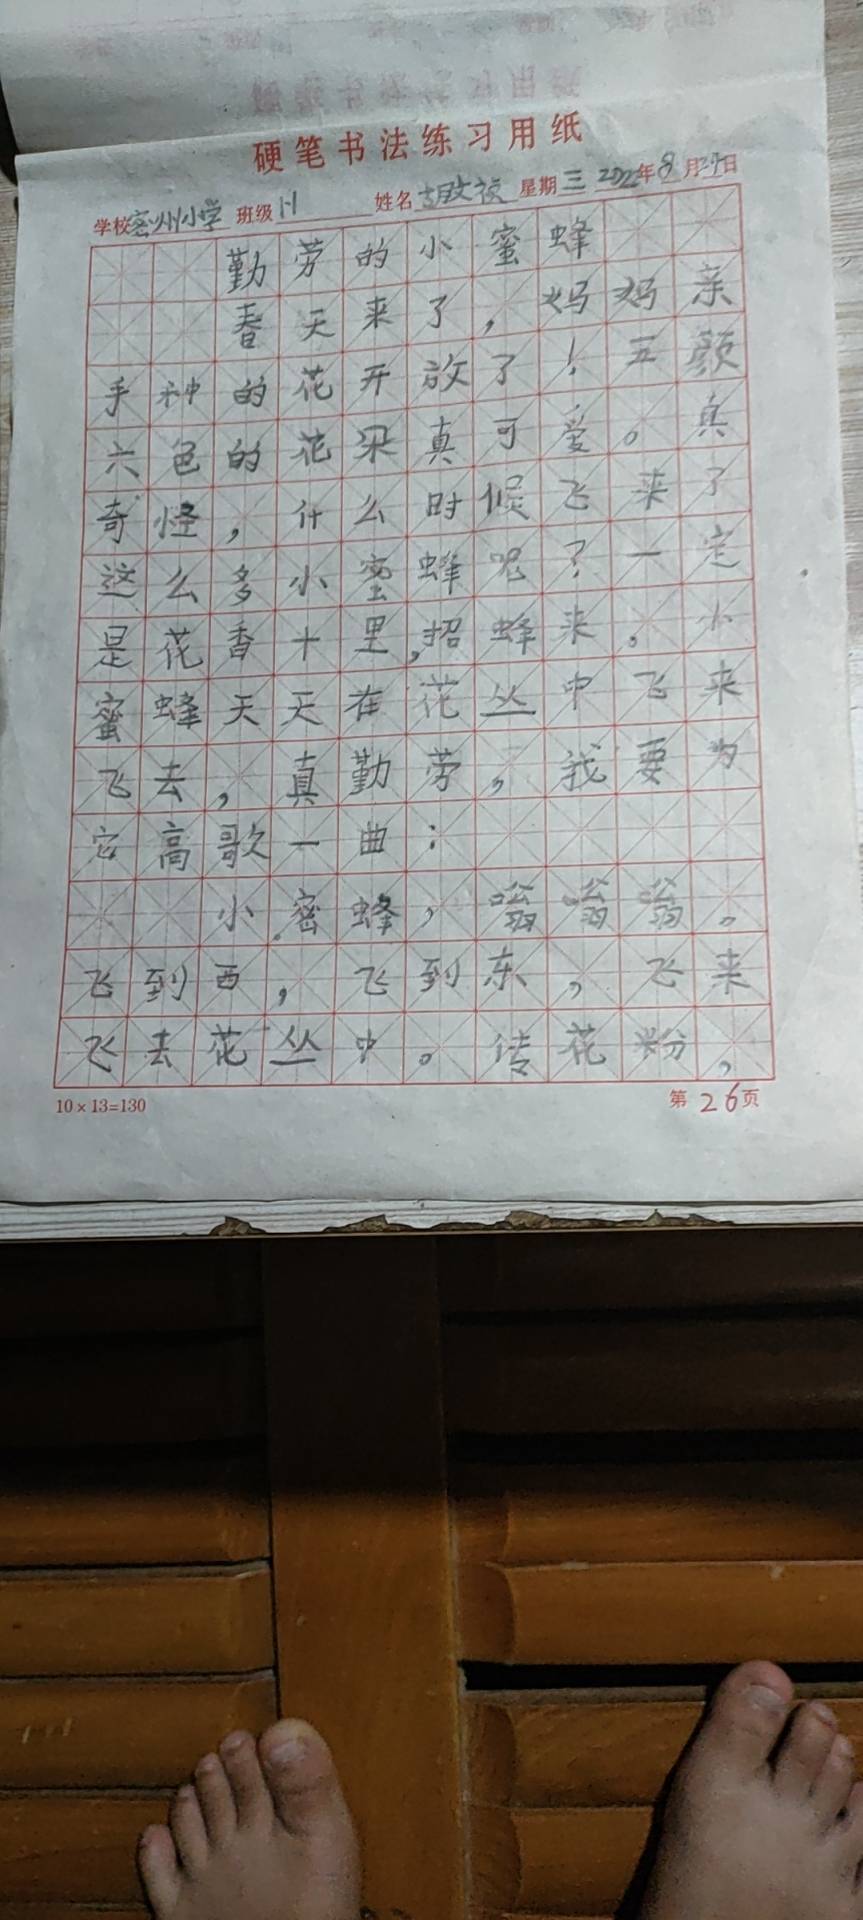 硬笔书法练习用纸
学校密州小学 班级 姓名 星期三 2022年8月 日
勤劳的小蜜蜂
春天来了，妈妈亲
手种的花开放了！五颜
六色的花朵真可爱。真
奇怪，什么时候飞来了
这么多小蜜蜂呢？一定
是花香十里,招蜂来。小
蜜蜂天天在花丛中飞来
飞去，真勤劳，我要为
它高歌一曲：
小密蜂，嗡嗡嗡。
飞到西，飞到东，飞来
飞去花丛中。传花粉，
10×13=130 第26页